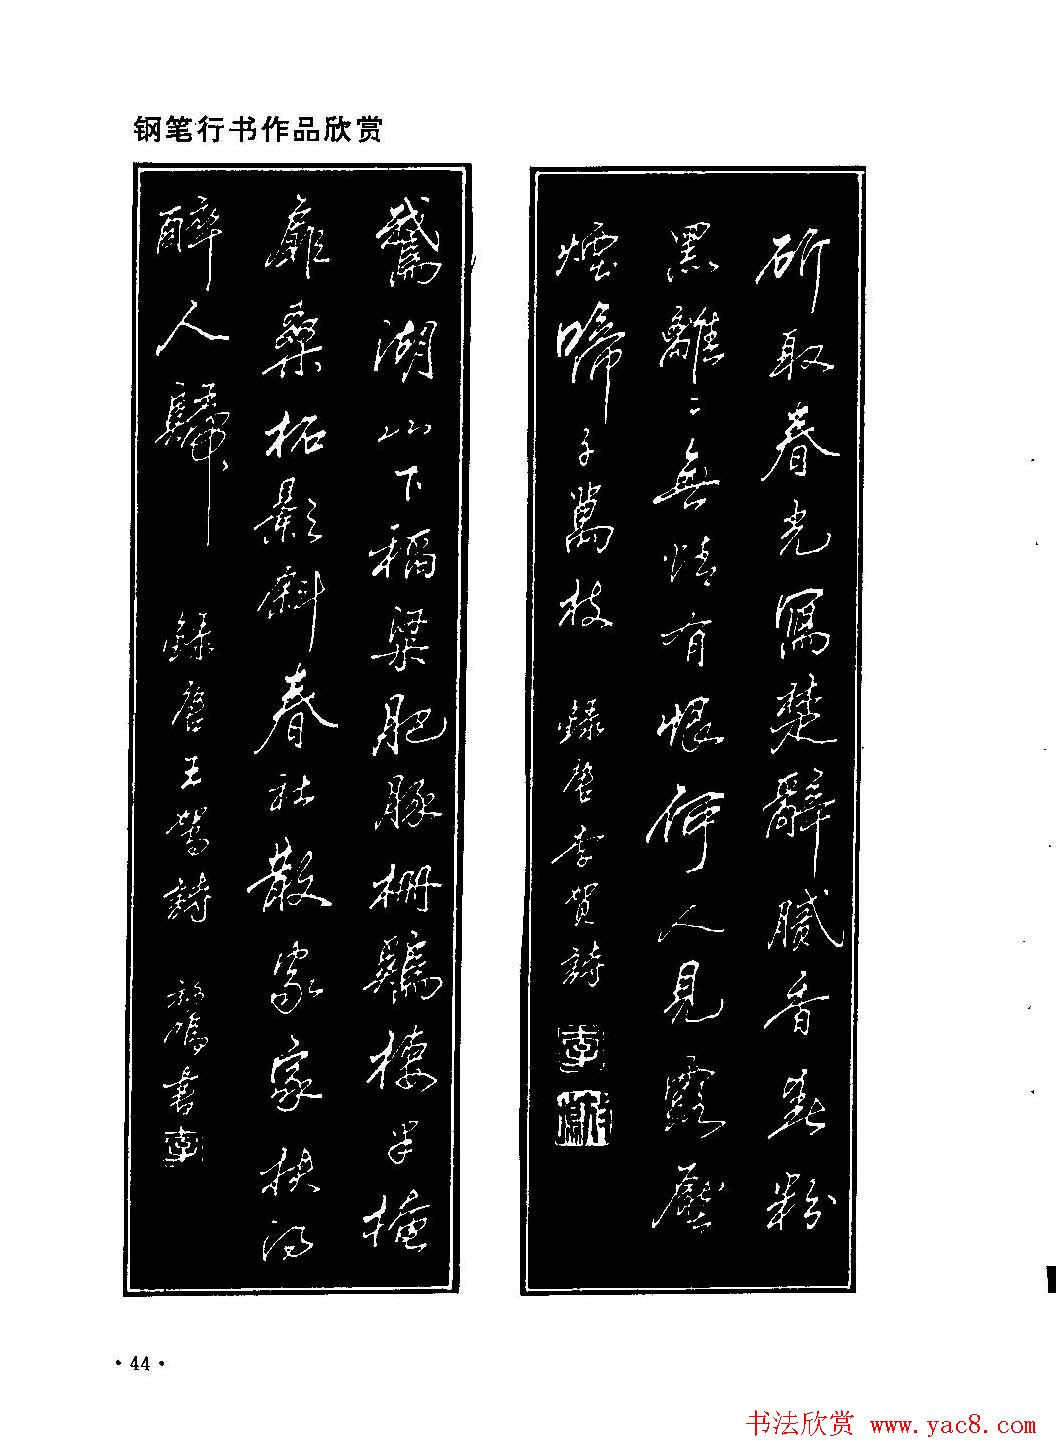 钢笔行书作品欣赏
斫取春光寫楚辭膩香春粉
黑離〻無情有恨何人見露壓
煙啼千萬枝 錄唐李賀詩
李
放鳴
鵞湖山下稻粱肥豚柵鷄棲半掩
扉桑柘影斜春社散家家扶得
醉人歸 錄唐王駕詩 放鳴書
李
·44·
书法欣赏 www.yac8.com